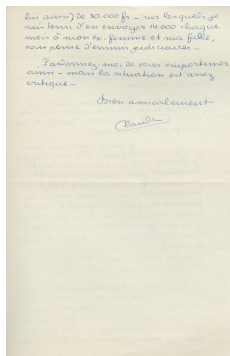 lui aurai) de 30.000 frs - sur lesquels je
suis tenu d'en envoyer 14.000 chaque
mois à mon ex. femme et ma fille,
sous peine d'ennuis judiciaires...
Pardonnez-moi de vous importuner
ainsi - mais la situation est assez
critique...
Bien amicalement